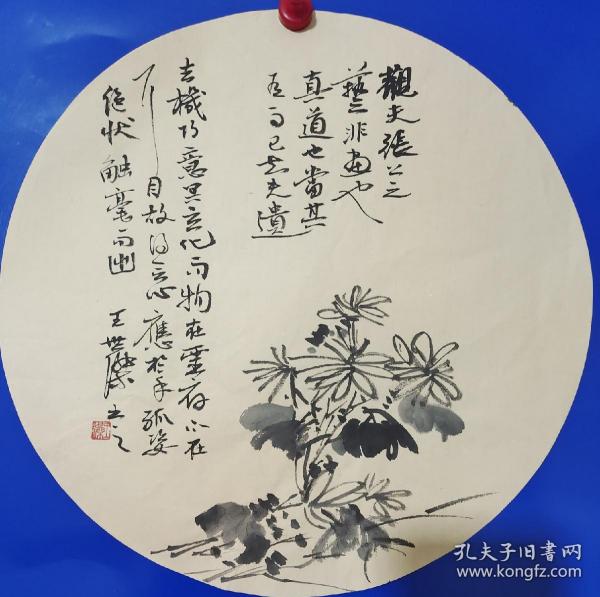 觀夫張公之
藝非畫也
真道也當其
有事已知夫遺
去機巧意冥玄化而物在靈府不在
耳目故得於心應於手孤姿
絕狀觸毫而出 王世
孔夫子旧书网
www.kongfz.com